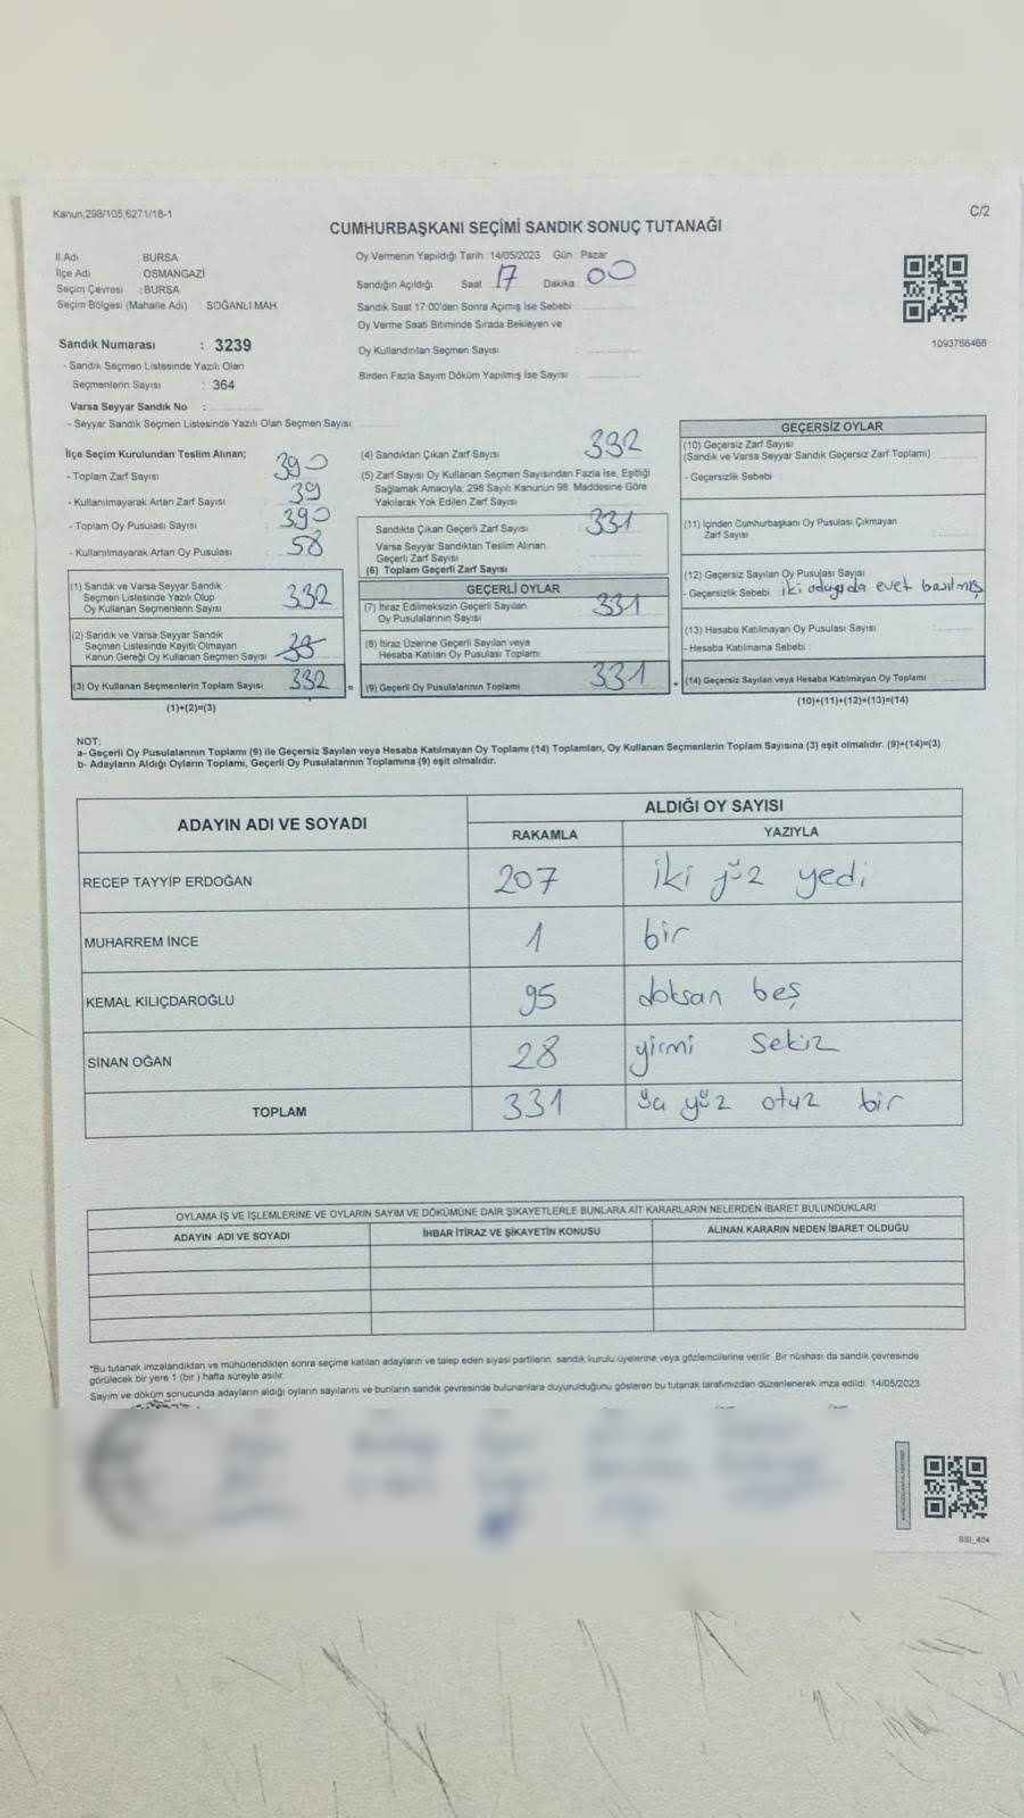 Kanun;298/105,6271/18-1
C/2
CUMHURBAŞKANI SEÇİMİ SANDIK SONUÇ TUTANAĞI
İl Adı BURSA
İlçe Adı OSMANGAZİ
Seçim Çevresi : BURSA
Seçim Bölgesi (Mahalle Adı) SOĞANLI MAH
Sandık Numarası : 3239
- Sandık Seçmen Listesinde Yazılı Olan
Seçmenlerin Sayısı : 364
Varsa Seyyar Sandık No :
- Seyyar Sandık Seçmen Listesinde Yazılı Olan Seçmen Sayısı
Oy Vermenin Yapıldığı Tarih: 14/05/2023 Gün: Pazar
Sandığın Açıldığı Saat 17 Dakika 00
Sandık Saat 17:00'den Sonra Açılmış İse Sebebi
Oy Verme Saati Bitiminde Sırada Bekleyen ve
Oy Kullandırılan Seçmen Sayısı
Birden Fazla Sayım Döküm Yapılmış İse Sayısı
1093786468
İlçe Seçim Kurulundan Teslim Alınan;
- Toplam Zarf Sayısı 390
- Kullanılmayarak Artan Zarf Sayısı 39
- Toplam Oy Pusulası Sayısı 390
- Kullanılmayarak Artan Oy Pusulası 58
(1) Sandık ve Varsa Seyyar Sandık
Seçmen Listesinde Yazılı Olup
Oy Kullanan Seçmenlerin Sayısı 332
(2) Sandık ve Varsa Seyyar Sandık
Seçmen Listesinde Kayıtlı Olmayan
Kanun Gereği Oy Kullanan Seçmen Sayısı
(3) Oy Kullanan Seçmenlerin Toplam Sayısı 332
(1)+(2)=(3)
(4) Sandıktan Çıkan Zarf Sayısı 332
(5) Zarf Sayısı Oy Kullanan Seçmen Sayısından Fazla İse, Eşitliği
Sağlamak Amacıyla; 298 Sayılı Kanunun 98. Maddesine Göre
Yakılarak Yok Edilen Zarf Sayısı
Sandıkta Çıkan Geçerli Zarf Sayısı 331
Varsa Seyyar Sandıktan Teslim Alınan
Geçerli Zarf Sayısı
(6) Toplam Geçerli Zarf Sayısı
GEÇERLİ OYLAR
(7) İtiraz Edilmeksizin Geçerli Sayılan
Oy Pusulalarının Sayısı 331
(8) İtiraz Üzerine Geçerli Sayılan veya
Hesaba Katılan Oy Pusulası Toplamı
= (9) Geçerli Oy Pusulalarının Toplamı 331
GEÇERSİZ OYLAR
(10) Geçersiz Zarf Sayısı
(Sandık ve Varsa Seyyar Sandık Geçersiz Zarf Toplamı)
- Geçersizlik Sebebi
(11) İçinden Cumhurbaşkanı Oy Pusulası Çıkmayan
Zarf Sayısı
(12) Geçersiz Sayılan Oy Pusulası Sayısı
- Geçersizlik Sebebi iki adayada evet basılmış
(13) Hesaba Katılmayan Oy Pusulası Sayısı
- Hesaba Katılmama Sebebi :
+ (14) Geçersiz Sayılan veya Hesaba Katılmayan Oy Toplamı
(10)+(11)+(12)+(13)=(14)
NOT:
a- Geçerli Oy Pusulalarının Toplamı (9) ile Geçersiz Sayılan veya Hesaba Katılmayan Oy Toplamı (14) Toplamları, Oy Kullanan Seçmenlerin Toplam Sayısına (3) eşit olmalıdır. (9)+(14)=(3)
b- Adayların Aldığı Oyların Toplamı, Geçerli Oy Pusulalarının Toplamına (9) eşit olmalıdır.
ADAYIN ADI VE SOYADI
ALDIĞI OY SAYISI
RAKAMLA YAZIYLA
RECEP TAYYİP ERDOĞAN 207 iki yüz yedi
MUHARREM İNCE 1 bir
KEMAL KILIÇDAROĞLU 95 doksan beş
SİNAN OĞAN 28 yirmi sekiz
TOPLAM 331 yüz otuz bir
OYLAMA İŞ VE İŞLEMLERİNE VE OYLARIN SAYIM VE DÖKÜMÜNE DAİR ŞİKAYETLERLE BUNLARA AİT KARARLARIN NELERDEN İBARET BULUNDUKLARI
ADAYIN ADI VE SOYADI İHBAR İTİRAZ VE ŞİKAYETİN KONUSU ALINAN KARARIN NEDEN İBARET OLDUĞU
*Bu tutanak imzalandıktan ve mühürlendikten sonra seçime katılan adayların ve talep eden siyasi partilerin, sandık kurulu üyelerine veya gözlemcilerine verilir. Bir nüshası da sandık çevresinde
görülecek bir yere 1 (bir ) hafta süreyle asılır.
Sayım ve döküm sonucunda adayların aldığı oyların sayılarını ve bunların sandık çevresinde bulunanlara duyurulduğunu gösteren bu tutanak tarafımızdan düzenlenerek imza edildi. 14/05/2023